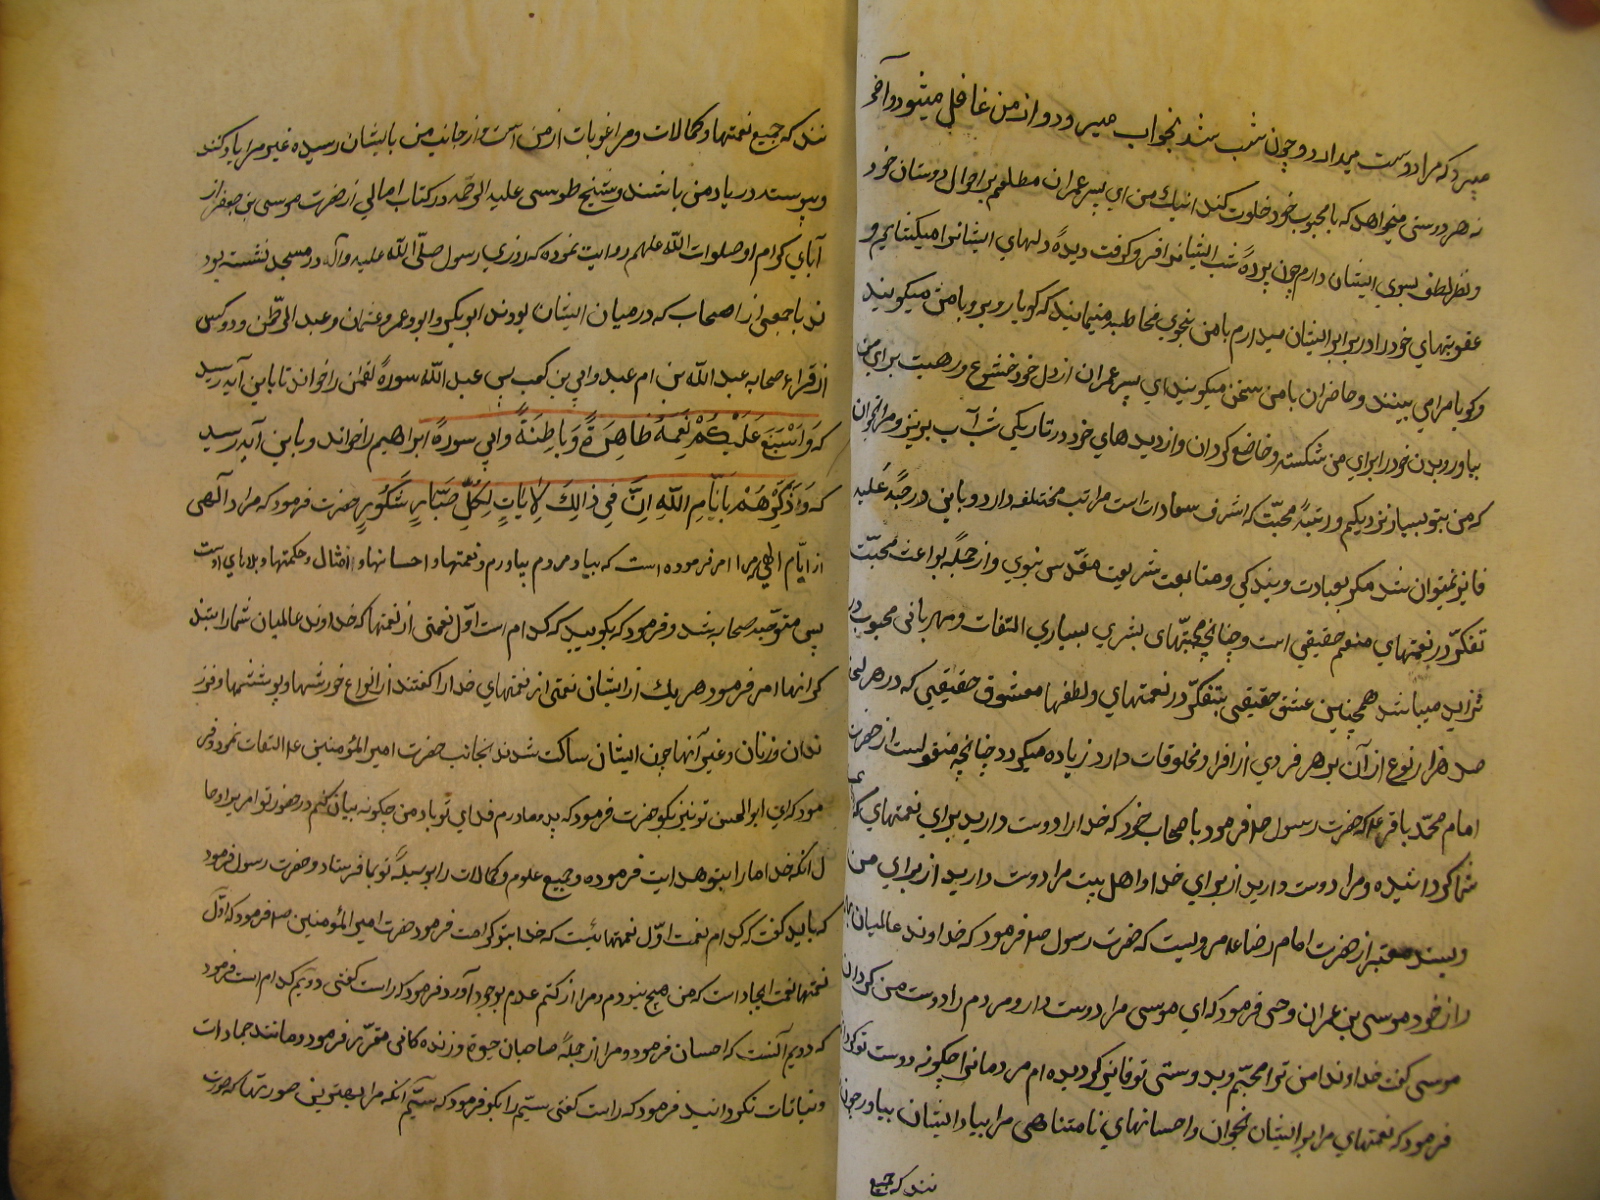 میبرد که مرا دوست میدارد و چون شب شد بخواب میرود و از من غافل میشود و آخر
نه هر دوستی میخواهد که با محبوب خود خلوت کند اینک من ای پسر عمران مطلعم بر احوال دوستان خود
و نظر لطف بسوی ایشان دارم چون پردهٔ شب ایشانرا فرو گرفت دیدهٔ دلهای ایشانرا میکشایم و
عقوبتهای خود را در برابر ایشان میدارم با من بنجوی مخاطبه مینمایند که گویا روبرو با من میگویند
و گویا مرا می بینند و حاضران با من سخن میگویند ای پسر عمران از دل خود خشوع و رهبت برای من
بیاور و بدن خود را برای من شکسته و خاضع گردان و از دیدهای خود در تاریکی شب آب بریز و مرا بخوان
که من بتو بسیار نزدیکم و رتبهٔ محبّت که اشرف سعادات است مراتب مختلفه دارد و باین درجهٔ علیه
فایز نمیتوان شد مگر بعبادت و بندگی و متابعت شریعت مقدّس نبوی و از جملهٔ بواعث محبّت
تفکّر در نعمتهای منعم حقیقی است و چنانچه محبّتهای بشری ببسیاری التفات و مهربانی محبوب در
تزاید میباشد همچنین عشق حقیقی بتفکّر در نعمتهای و لطفها معشوق حقیقی که در هر لحظه
صد هزار نوع از آن بر هر فردی از افراد مخلوقات دارد زیاده میگردد چنانچه منقولست از حضرت
امام محمّد باقر ع که حضرت رسول ص فرمود باصحاب خود که خدا را دوست دارید برای نعمتهای که
شما کردانیده و مرا دوست دارید از برای خدا و اهل بیت مرا دوست دارید از برای من
و بسند معتبر از حضرت امام رضا ع مرویست که حضرت رسول ص فرمود که خداوند عالمیان
راز خود موسی بن عمران وحی فرمود که ای موسی مرا دوست دار و مردم را دوست من گردان
موسی گفت خداوندا من ترا محبّم و بدوستی تو فایز گردیده ام مردمانرا چگونه دوست تو گردانم
فرمود که نعمتهای مرا بر ایشان بخوان و احسانهای نامتناهی مرا بیاد ایشان بیاور چون
نند که جمیع
نند که جمیع نعمتها و کمالات و مرغوبات از من است و از جانب من بایشان رسیده غیر مرا یاد نکنند
و پیوسته در یاد من باشند و شیخ طوسی علیه الرحمه در کتاب امالی از حضرت موسی بن جعفر از
آبای کرام او صلوات الله علیهم روایت نموده که روزی رسول صلّی الله علیه و آله در مسجد نشسته بود
ند با جمعی از اصحاب که در میان ایشان بودند ابوبکر و ابو و عمر و عثمان و عبد الرحمن و دو کس
از قراء صحابه عبد الله بن ام عبد و ابی بن کعب پس عبد الله سورهٔ لقمان را خواند تا باین آیه رسید
که وَاَسْبَغَ عَلَیْکُمْ نِعَمَهُ ظَاهِرَةً وَبَاطِنَةً و ابی سورهٔ ابراهیم را خواند و باین آیه رسید
که وَذَکِّرْهُمْ بِاَیَّامِ اللهِ اِنَّ فِی ذَالِکَ لَاٰیَاتٍ لِکُلِّ صَبَّارٍ شَکُورٍ حضرت فرمود که مراد الهی
از ایّام الله مرا امر فرموده است که بیاد مردم بیاورم نعمتها و احسانها و امثال و حکمتها و بلاهای اوست
پس متوجّه صحابه شد و فرمود که بگویید که کدام است اوّل نعمتی از نعمتها که خداوند عالمیان شما را بشد
کر انها امر فرمود هر یک از ایشان نعمتی از نعمتهای خدا را گفتند از انواع خورشها و پوششها و فرز
ندان و زنان و غیر آنها چون ایشان ساکت شدند بجانب حضرت امیر المؤمنین ع التفات نمود و فر
مود که ای ابو الحسن تو نیز بگو حضرت فرمود که پدر و مادرم فدای تو باد من چگونه بیان کنم در حضور تو امریرا و حا
ل انکه خدا ما را بتو هدایت فرموده و جمیع علوم و کمالات را بوسیلهٔ تو بما فرستاد و حضرت رسول فرمود
که باید گفت که کدام نعمت اوّل نعمتهائیست که خدا بتو کرامت فرمود حضرت امیر المؤمنین ص فرمود که اوّل
نعمتها نعمت ایجاد است که من هیچ نبودم و مرا از کتم عدم بوجود آورد فرمود که راست گفتی دویم کدام است فرمود
که دویم آنست که احسان فرمود و مرا از جملهٔ صاحبان حیوة و زنده گانی مقرّر فرمود و مانند جمادات
و نباتات نگردانید فرمود که راست گفتی سیّم را بگو فرمود که سیّم آنکه مرا بهترین صورتها که صورت